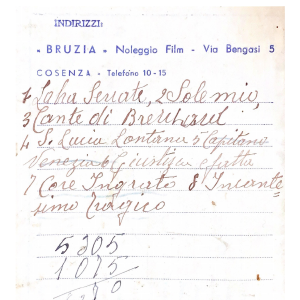 INDIRIZZI:
« BRUZIA » Noleggio Film - Via Bengasi 5
COSENZA - Telefono 10-15
1 Laba Serrate, 2 Sole mio,
3 Cante di
4 S. Lucia Lontana 5 Capitano
Venezia 6 Giustizia è fatta
7 Core Ingrato 8 Incante=
simo Tragico
5305
1015